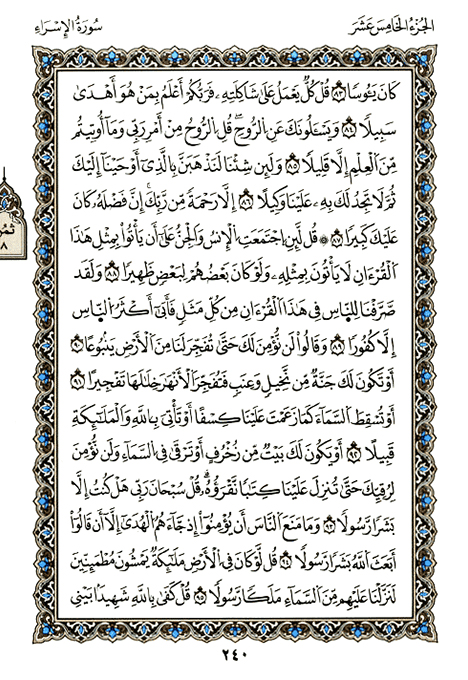 الجُزْءُ الخَامِسَ عَشَرَ
سُورَةُ الإِسْرَاءِ
كَانَ يَـُٔوسًا ٨٣ قُلْ كُلٌّ يَعْمَلُ عَلَىٰ شَاكِلَتِهِۦ فَرَبُّكُمْ أَعْلَمُ بِمَنْ هُوَ أَهْدَىٰ
سَبِيلًا ٨٤ وَيَسْـَٔلُونَكَ عَنِ الرُّوحِ ۖ قُلِ الرُّوحُ مِنْ أَمْرِ رَبِّي وَمَآ أُوتِيتُم
مِّنَ الْعِلْمِ إِلَّا قَلِيلًا ٨٥ وَلَئِن شِئْنَا لَنَذْهَبَنَّ بِالَّذِىٓ أَوْحَيْنَآ إِلَيْكَ
ثُمَّ لَا تَجِدُ لَكَ بِهِۦ عَلَيْنَا وَكِيلًا ٨٦ إِلَّا رَحْمَةً مِّن رَّبِّكَ ۚ إِنَّ فَضْلَهُۥ كَانَ
عَلَيْكَ كَبِيرًا ٨٧ ۞ قُل لَّئِنِ اجْتَمَعَتِ الْإِنسُ وَالْجِنُّ عَلَىٰٓ أَن يَأْتُوا۟ بِمِثْلِ هَٰذَا
الْقُرْءَانِ لَا يَأْتُونَ بِمِثْلِهِۦ وَلَوْ كَانَ بَعْضُهُمْ لِبَعْضٍ ظَهِيرًا ٨٨ وَلَقَدْ
صَرَّفْنَا لِلنَّاسِ فِى هَٰذَا الْقُرْءَانِ مِن كُلِّ مَثَلٍ فَأَبَىٰٓ أَكْثَرُ النَّاسِ
إِلَّا كُفُورًا ٨٩ وَقَالُوا۟ لَن نُّؤْمِنَ لَكَ حَتَّىٰ تُفَجِّرَ لَنَا مِنَ الْأَرْضِ يَنۢبُوعًا ٩٠
أَوْ تَكُونَ لَكَ جَنَّةٌ مِّن نَّخِيلٍ وَعِنَبٍ فَتُفَجِّرَ الْأَنْهَٰرَ خِلَٰلَهَا تَفْجِيرًا ٩١
أَوْ تُسْقِطَ السَّمَآءَ كَمَا زَعَمْتَ عَلَيْنَا كِسَفًا أَوْ تَأْتِىَ بِاللَّهِ وَالْمَلَٰٓئِكَةِ
قَبِيلًا ٩٢ أَوْ يَكُونَ لَكَ بَيْتٌ مِّن زُخْرُفٍ أَوْ تَرْقَىٰ فِى السَّمَآءِ وَلَن نُّؤْمِنَ
لِرُقِيِّكَ حَتَّىٰ تُنَزِّلَ عَلَيْنَا كِتَٰبًا نَّقْرَؤُهُۥ ۗ قُلْ سُبْحَانَ رَبِّى هَلْ كُنتُ إِلَّا
بَشَرًا رَّسُولًا ٩٣ وَمَا مَنَعَ النَّاسَ أَن يُؤْمِنُوٓا۟ إِذْ جَآءَهُمُ الْهُدَىٰٓ إِلَّآ أَن قَالُوٓا۟
أَبَعَثَ اللَّهُ بَشَرًا رَّسُولًا ٩٤ قُل لَّوْ كَانَ فِى الْأَرْضِ مَلَٰٓئِكَةٌ يَمْشُونَ مُطْمَئِنِّينَ
لَنَزَّلْنَا عَلَيْهِم مِّنَ السَّمَآءِ مَلَكًا رَّسُولًا ٩٥ قُلْ كَفَىٰ بِاللَّهِ شَهِيدًۢا بَيْنِى
٢٤٠